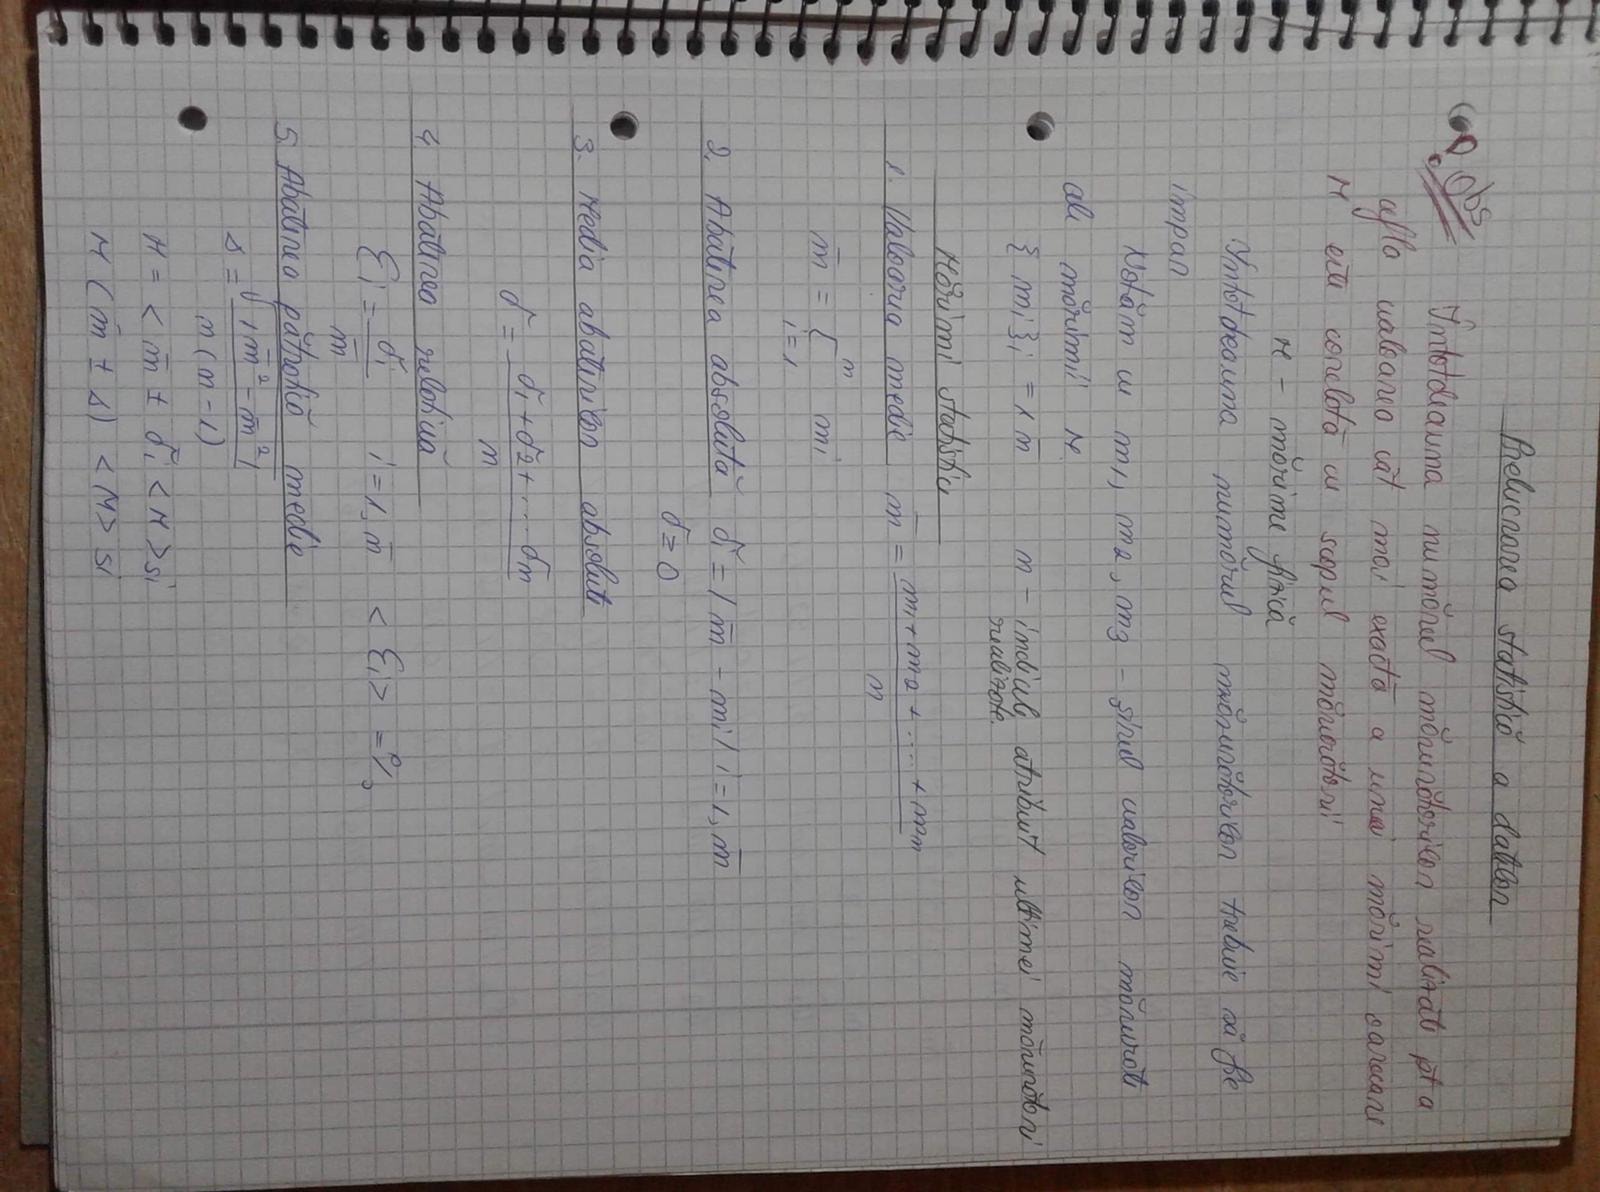 Prelucrarea statistică a datelor
Obs Întotdeauna numărul măsurătorilor realizate pt a
afla valoarea cât mai exactă a unei mărimi oarecare
M este corelată cu scopul măsurătorii!
M - mărime fizică
Întotdeauna numărul măsurătorilor trebuie să fie
impar
Notăm cu m1, m2, m3 - șirul valorilor măsurate
ale mărimii M
{ mi } i = 1 n̄ n - indicele atribuit ultimei măsurători
realizate.
Mărimi statistice
1. Valoarea medie m̄ = m1 + m2 + .... + mn
n
n
m̄ = mi
i=1
2. Abaterea absolută δi = | m̄ - mi | i = 1, n̄
δ ≥ 0
3. Media abaterilor absolute
δ = δ1 + δ2 + .... δn
n
4. Abaterea relativă
Ɛi = δi i = 1, n̄ < Ɛi > = %
m̄
5. Abaterea pătratică medie
s = √ + m̄² - m̄²
n (n - 1)
M = < m̄ ± δi < M > si
M ( m̄ ± s ) < M > si